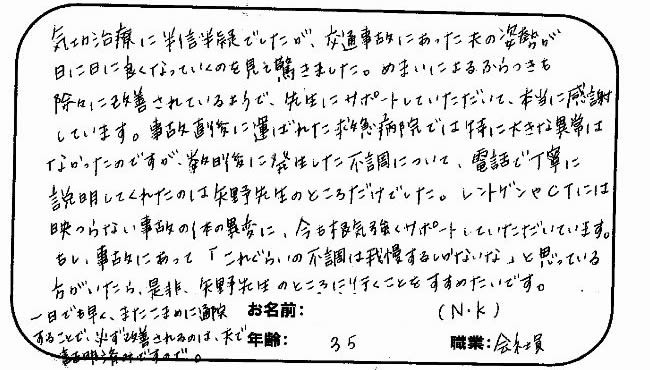 気功治療に半信半疑でしたが、交通事故にあった夫の姿勢が
日に日に良くなっていくのを見て驚きました。めまいによるふらつきも
除々に改善されているようで、先生にサポートしていただいて、本当に感謝
しています。事故直後に運ばれた救急病院では特に大きな異常は
なかったのですが、数日後に発生した不調について、電話で丁寧に
説明してくれたのは矢野先生のところだけでした。レントゲンやCTには
映つらない事故の体の異変に、今も根気強くサポートしていただいています。
もし、事故にあって「これぐらいの不調は我慢するしかないな」と思っている
方がいたら、是非、矢野先生のところに行くことをすすめたいです。
一日でも早く、またこまめに通院 お名前: (N.K)
することで、必ず改善されるのは、夫で 年齢: 35 職業:会社員
ので。